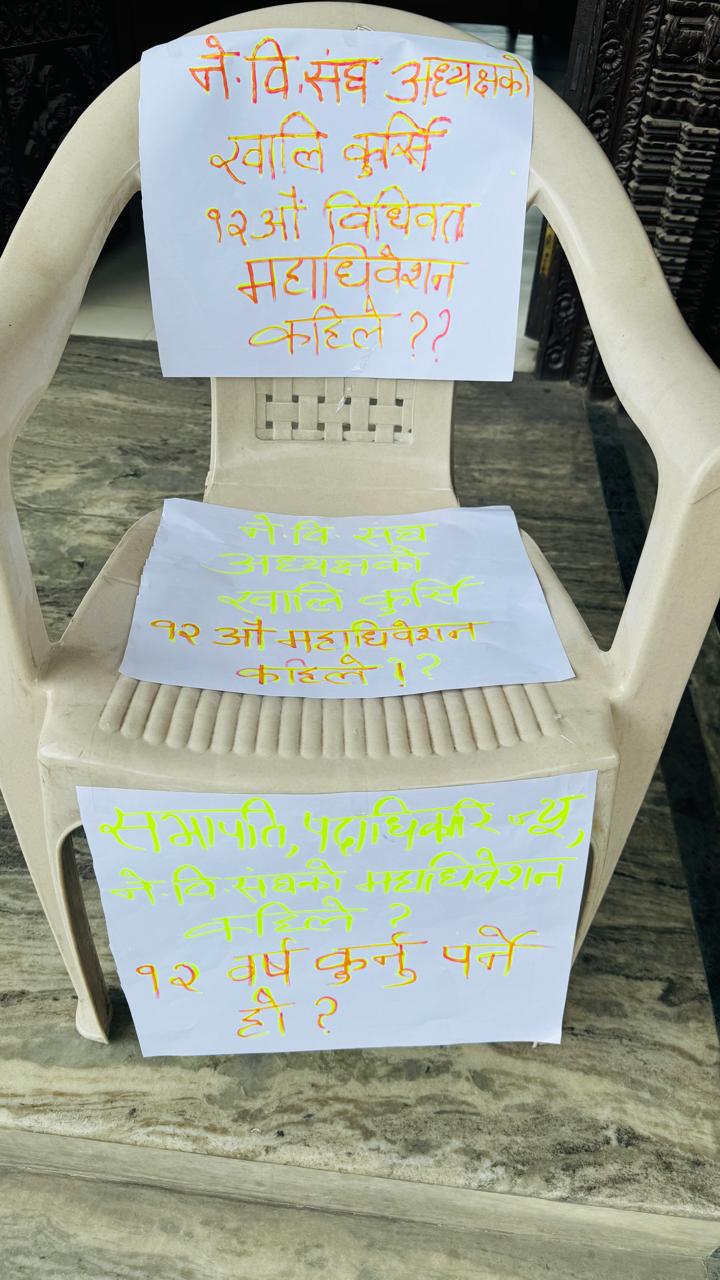 ने.वि.संघ अध्यक्षको
खालि कुर्सि
१२औं विधिवत
महाधिवेशन
कहिले ??
ने.वि. संघ
अध्यक्षको
खालि कुर्सि
१२ औ महाधिवेशन
कहिले ! ?
सभापति, पदाधिकारि ज्यू,
ने.वि.संघको महाधिवेशन
कहिले ?
१२ वर्ष कुर्नु पर्ने
हो ?